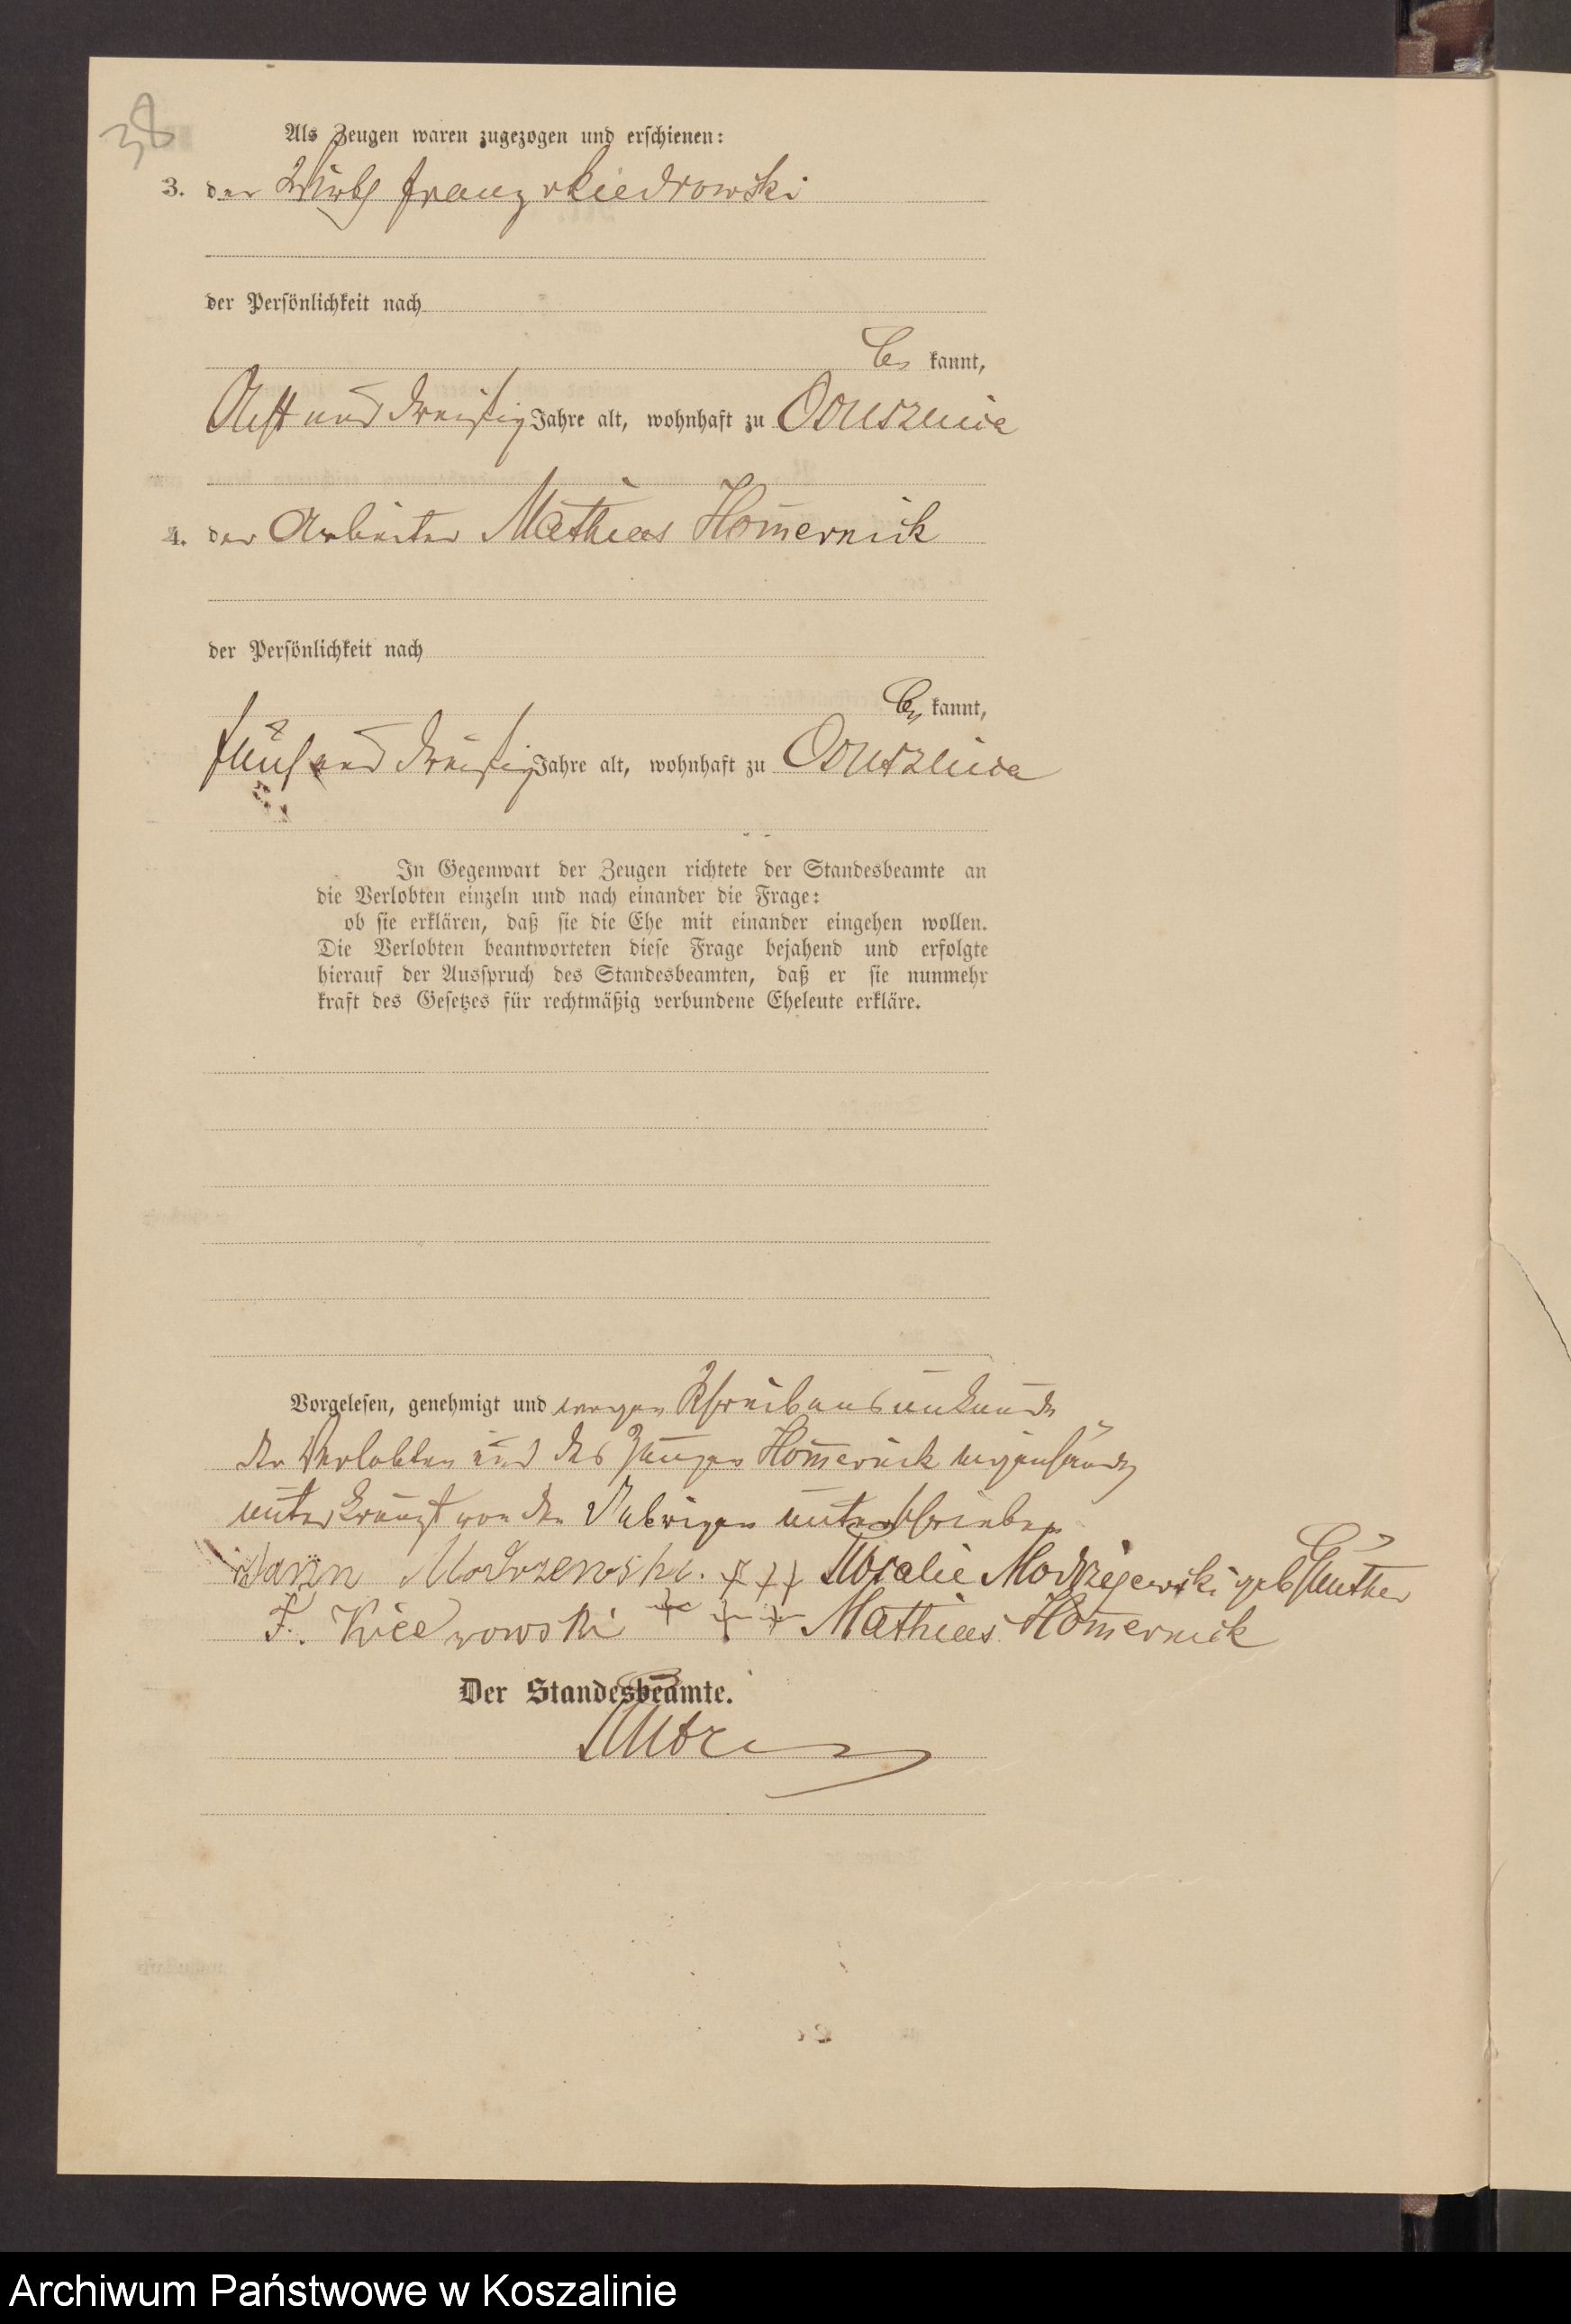 38
Als Zeugen waren zugezogen und erschienen:
3. der Wirth Franz v Kiedrowski
der Persönlichkeit nach
be kannt,
Acht und dreißig Jahre alt, wohnhaft zu Ossusznica
4. der Arbeiter Mathias Homernick
der Persönlichkeit nach
be kannt,
fünf und dreißig Jahre alt, wohnhaft zu Ossusznica
In Gegenwart der Zeugen richtete der Standesbeamte an
die Verlobten einzeln und nach einander die Frage:
ob sie erklären, daß sie die Ehe mit einander eingehen wollen.
Die Verlobten beantworteten diese Frage bejahend und erfolgte
hierauf der Ausspruch des Standesbeamten, daß er sie nunmehr
kraft des Gesetzes für rechtmäßig verbundene Eheleute erkläre.
Vorgelesen, genehmigt und wegen Schreibensunkunde
der Verlobten und des Zeugen Homernick eigenhändig
unterkreuzt von den Uebrigen unterschrieben
+++ Rosalie Modrzejewski geb Günther
F. Kiedrowski +++ Mathias Homernick
Der Standesbeamte.
Archiwum Państwowe w Koszalinie